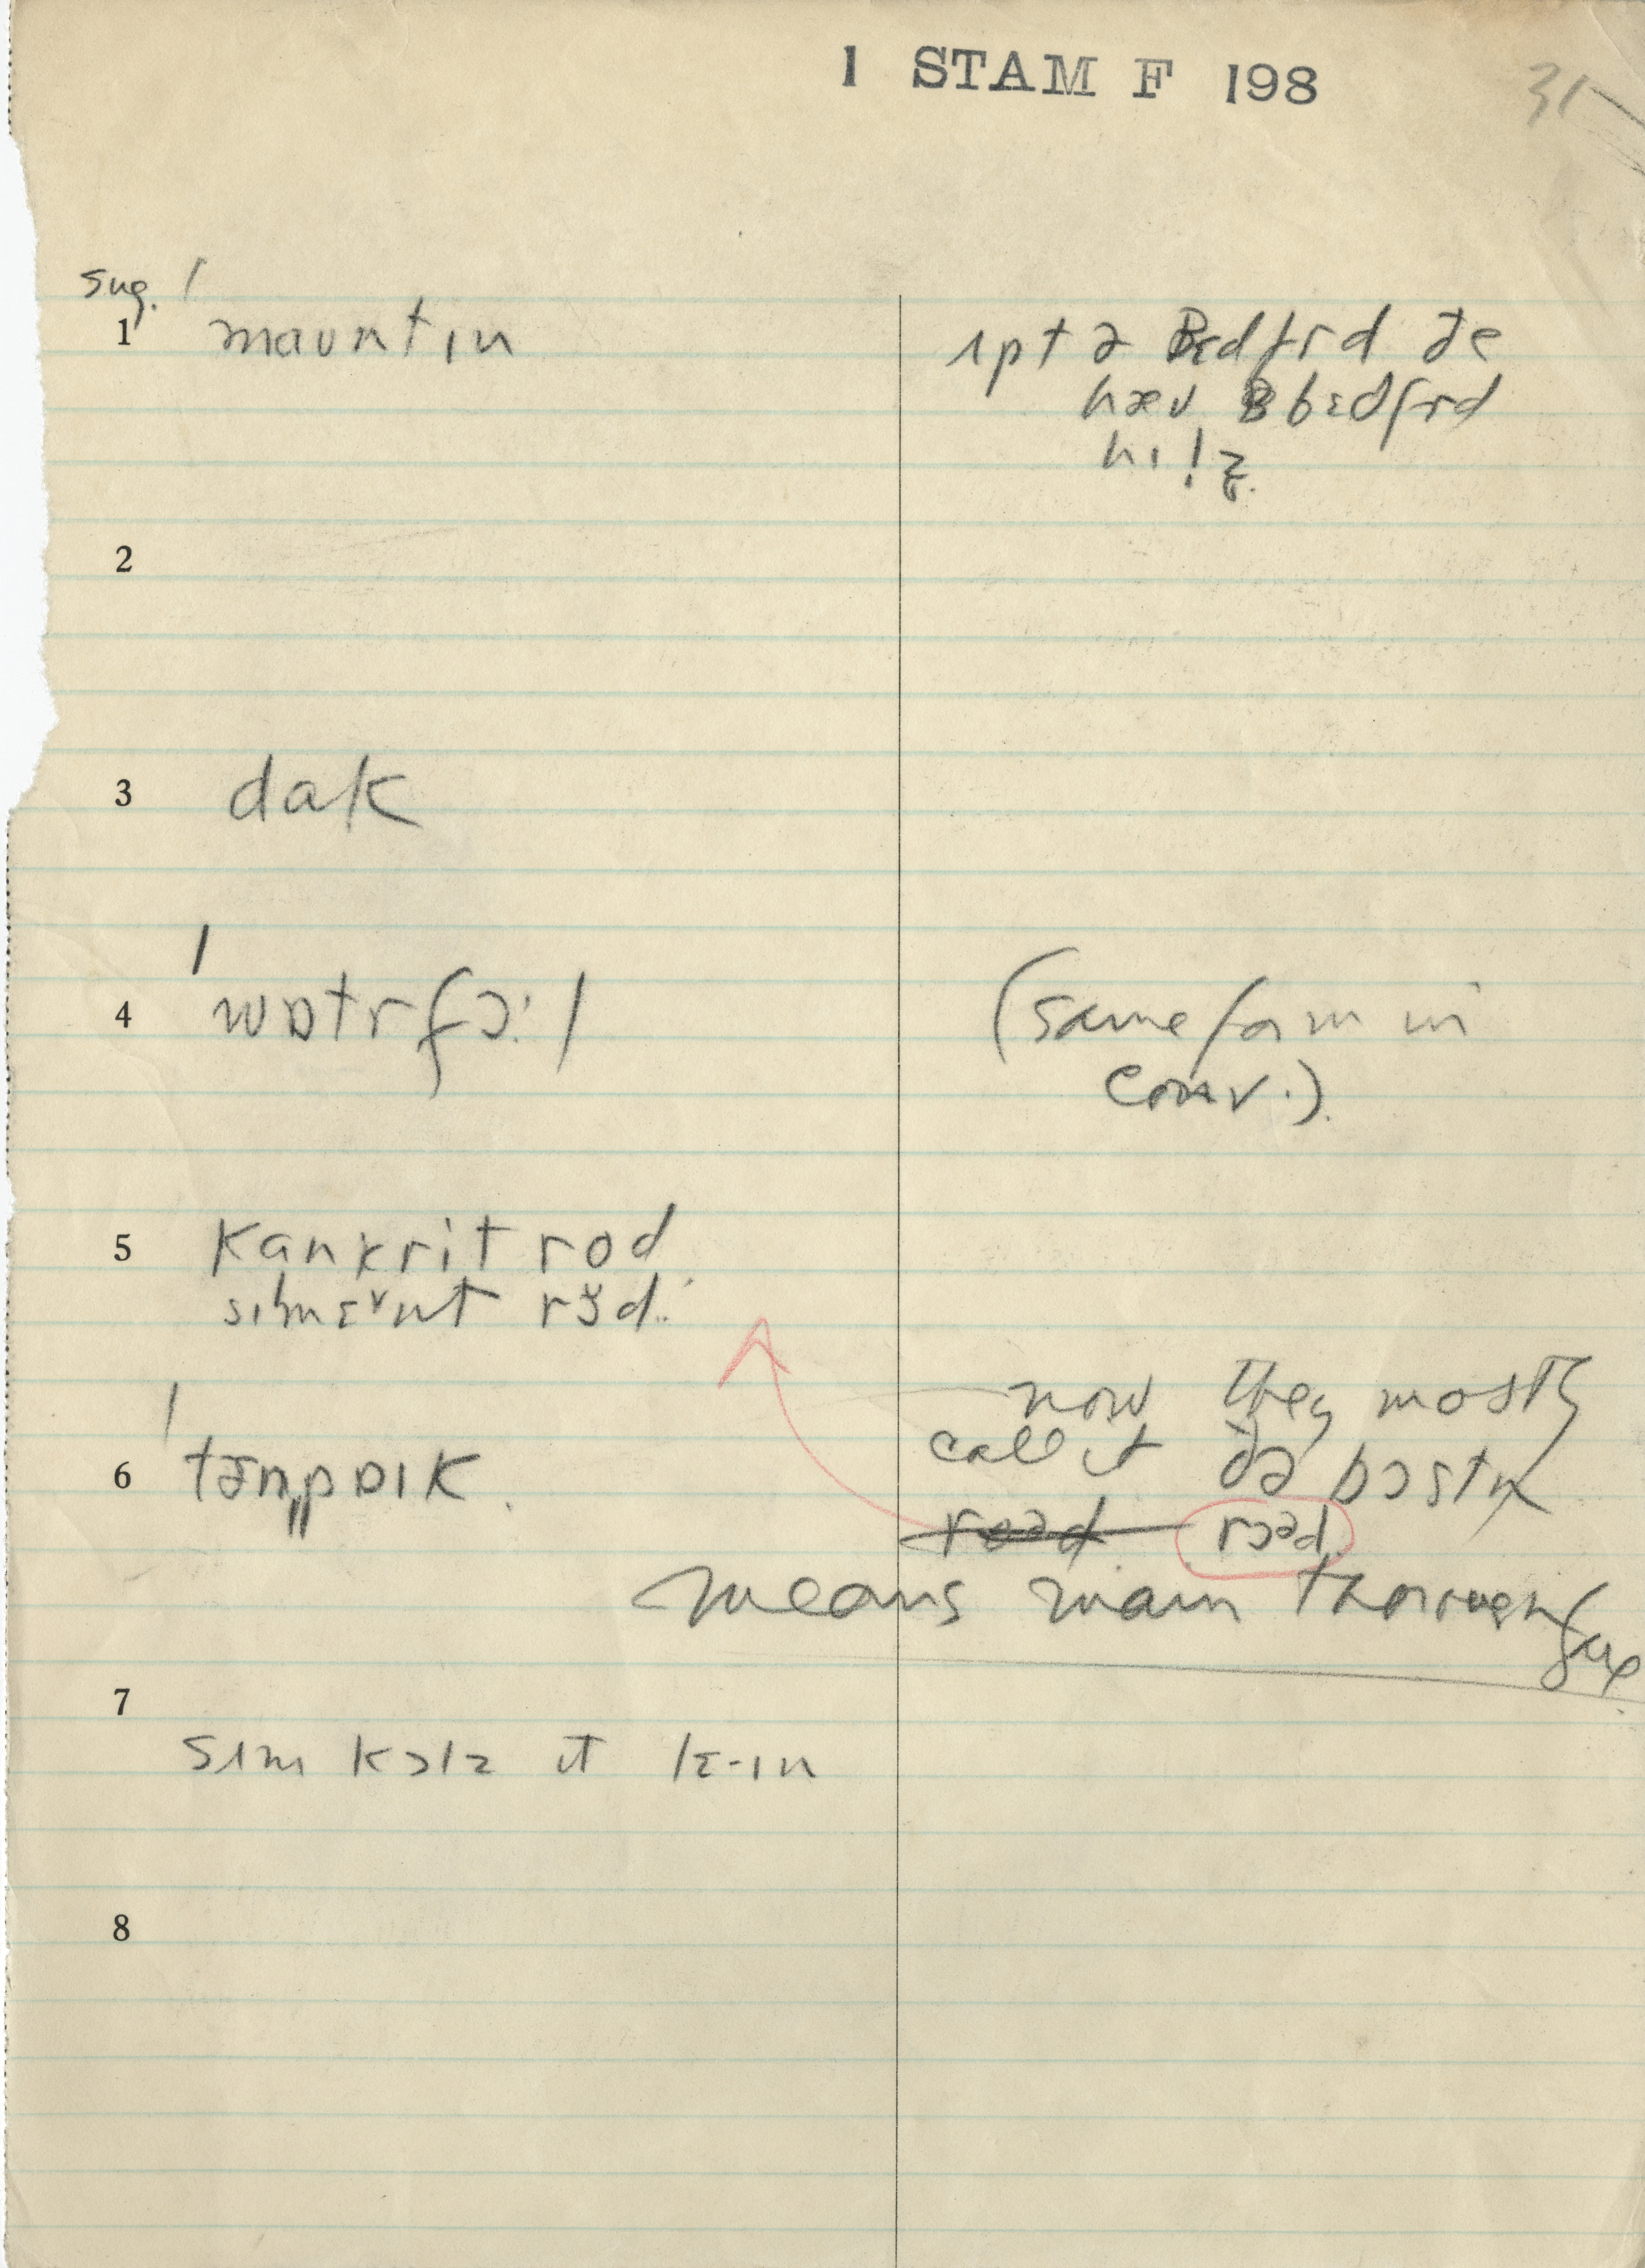 1 STAM F 198
31
sug. /
1 mauntɪn
ʌpt ə Bɛdfrd ðe
hæv bɛdfrd
hɪlz̥.
2
3 dak
4 ˈwɒtrfɔ:l
(same form in
conv.).
5 kankrit rod
sɪmɛnt rŏd.
now they mostly
call it ðə bɔstn
6 ˈtɜnpɒɪk.
road rɔəd.
means main thoroughfare
7
sʌm kɔlz it lɛ-ɪn
8